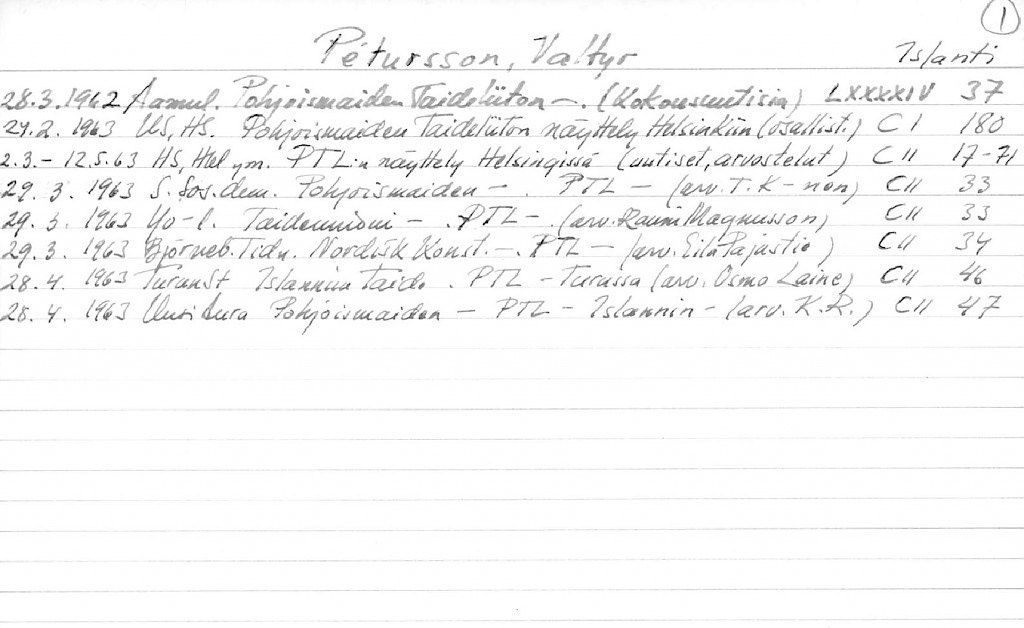 1
Pétursson, Valtyr Islanti
28.3.1962 Aamul. Pohjoismaiden Taideliiton —. (Kokousuutisia) LXXXXIV 37
24.2. 1963 US, HS. Pohjoismaiden Taideliiton näyttely Helsinkiin (osallist.) CI 180
2.3.– 12.5.63 HS, Hbl ym. PTL:n näyttely Helsingissä (uutiset, arvostelut) CII 17-71
29. 3. 1963 S. Sos.dem. Pohjoismaiden – . PTL – (arv. T. K–nen) CII 33
29. 3. 1963 Yo-l. Taideunioni – . PTL – . (arv. Rauni Magnusson) CII 33
29. 3. 1963 Björneb. Tidn. Nordisk Konst. – . PTL – (arv. Eila Pajastie) CII 34
28. 4. 1963 TurunSt Islannin Taide . PTL – Turussa (arv. Osmo Laine) CII 46
28. 4. 1963 Uusi Aura Pohjoismaiden – PTL – Islannin – (arv. K.R.) CII 47